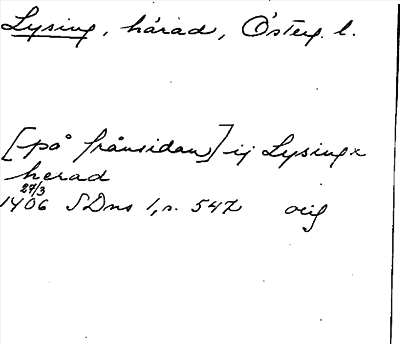 Lysing, härad, Österg. l.
[på frånsidan] ij Lysingx
herad
27/3
1406 SDns 1, s. 547 orig